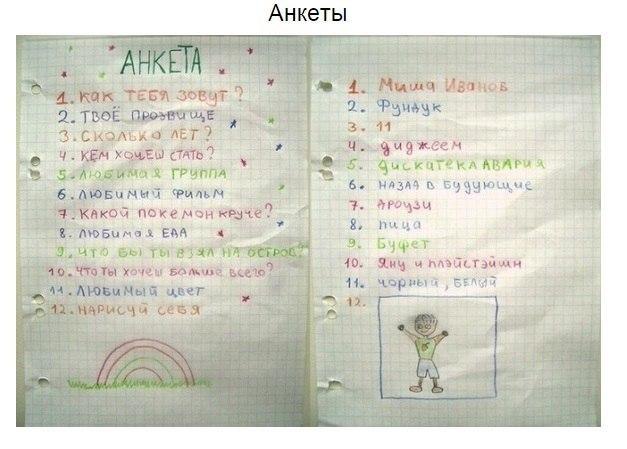 Анкеты
АНКЕТА
1. КАК ТЕБЯ ЗОВУТ?
2. ТВОЁ ПРОЗВИЩЕ
3. СКОЛЬКО ЛЕТ?
4. КЕМ ХОЧЕШ СТАТЬ?
5. ЛЮБИМАЯ ГРУППА
6. ЛЮБИМЫЙ ФИЛЬМ
7. КАКОЙ ПОКЕМОН КРУЧЕ?
8. ЛЮБИМАЯ ЕДА
9. ЧТО БЫ ТЫ ВЗЯЛ НА ОСТРОВ?
10. ЧТО ТЫ ХОЧЕШ БОЛЬШЕ ВСЕГО?
11. ЛЮБИМЫЙ ЦВЕТ
12. НАРИСУЙ СЕБЯ
1. Миша Иванов
2. Фундук
3. 11
4. диджеем
5. дискатека АВАРИЯ
6. назад в будующие
7. Ароузи
8. пица
9. Буфет
10. Яну и плэйстэйшн
11. чорный, белый
12.